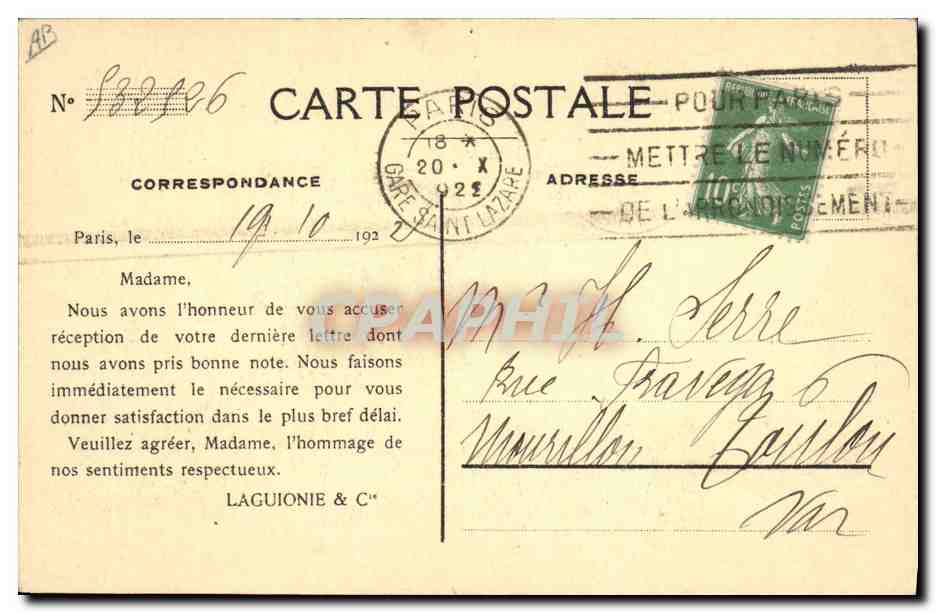 AB
Nº 532926
CARTE POSTALE
PARIS
18 *
20 · X
922
GARE SAINT LAZARE
POUR PARIS
METTRE LE NUMÉRO
DE L'ARRONDISSEMENT
10c
POSTES
CORRESPONDANCE
ADRESSE
Paris, le 19. 10 1922
Madame,
Nous avons l'honneur de vous accuser
réception de votre dernière lettre dont
nous avons pris bonne note. Nous faisons
immédiatement le nécessaire pour vous
donner satisfaction dans le plus bref délai.
Veuillez agréer, Madame, l'hommage de
nos sentiments respectueux.
LAGUIONIE & Cie
Me H. Serre
Rue Travega 6
Mourillon Toulon
Var
CPAPHIL